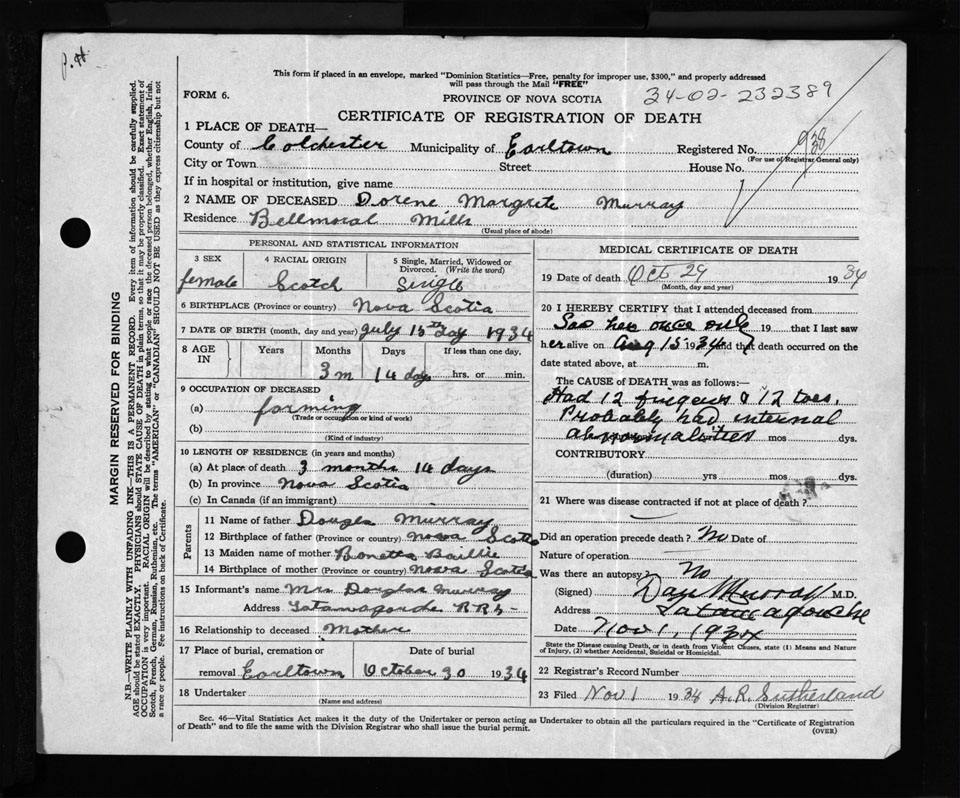 P.H.
This form if placed in an envelope, marked "Dominion Statistics—Free, penalty for improper use, $300," and properly addressed
will pass through the Mail "FREE"
FORM 6.
PROVINCE OF NOVA SCOTIA
34-02-232389
CERTIFICATE OF REGISTRATION OF DEATH
1 PLACE OF DEATH—
County of Colchester Municipality of Earltown Registered No. 938
(For use of Registrar General only)
City or Town Street House No.
If in hospital or institution, give name
2 NAME OF DECEASED Dorene Margrete Murray
Residence Bellmoral Mills
(Usual place of abode)
PERSONAL AND STATISTICAL INFORMATION
3 SEX 4 RACIAL ORIGIN 5 Single, Married, Widowed or
Divorced. (Write the word)
female Scotch Single
6 BIRTHPLACE (Province or country) Nova Scotia
7 DATE OF BIRTH (month, day and year) July 15th day 1934
8 AGE IN Years Months Days If less than one day,
3 m 14 days hrs. or min.
9 OCCUPATION OF DECEASED
(a) farming
(Trade or occupation or kind of work)
(b)
(Kind of industry)
10 LENGTH OF RESIDENCE (in years and months)
(a) At place of death 3 months 14 days
(b) In province Nova Scotia
(c) In Canada (if an immigrant)
Parents
11 Name of father Dougla Murray
12 Birthplace of father (Province or country) Nova Scotia
13 Maiden name of mother Bonetta Baillie
14 Birthplace of mother (Province or country) Nova Scotia
15 Informant's name Mrs Douglas Murray
Address Tatamagouche R R 5
16 Relationship to deceased Mother
17 Place of burial, cremation or Date of burial
removal Earltown October 30 1934
18 Undertaker
(Name and address)
MEDICAL CERTIFICATE OF DEATH
19 Date of death Oct 29 1934
(Month, day and year)
20 I HEREBY CERTIFY that I attended deceased from
Saw her once only 19 that I last saw
her alive on Aug 15 1934 and that death occurred on the
date stated above, at m.
The CAUSE OF DEATH was as follows:—
Had 12 fingers & 12 toes.
Probably had internal
abnormalities mos dys.
CONTRIBUTORY
(duration) yrs mos dys.
21 Where was disease contracted if not at place of death?
Did an operation precede death? No Date of
Nature of operation
Was there an autopsy? No
(Signed) Dan Murray M.D.
Address Tatamagouche
Date Nov 1, 1934
State the Disease causing Death, or in death from Violent Causes, state (1) Means and Nature
of Injury, (2) whether Accidental, Suicidal or Homicidal.
22 Registrar's Record Number
23 Filed Nov 1 1934 A. R. Sutherland
(Division Registrar)
Sec. 46—Vital Statistics Act makes it the duty of the Undertaker or person acting as Undertaker to obtain all the particulars required in the "Certificate of Registration
of Death" and to file the same with the Division Registrar who shall issue the burial permit.
(OVER)
MARGIN RESERVED FOR BINDING
N.B.—WRITE PLAINLY WITH UNFADING INK—THIS IS A PERMANENT RECORD. Every item of information should be carefully supplied.
AGE should be stated EXACTLY. PHYSICIANS should STATE CAUSE OF DEATH in plain terms, so that it may be properly classified. Exact statement of
OCCUPATION is very important. RACIAL ORIGIN will be described by stating to what people or race the deceased person belonged, whether English, Irish,
Scotch, French, German, Russian, Ruthenian, etc. The terms "AMERICAN" or "CANADIAN" SHOULD NOT BE USED as they express citizenship but not
a race or people. See instructions on back of Certificate.